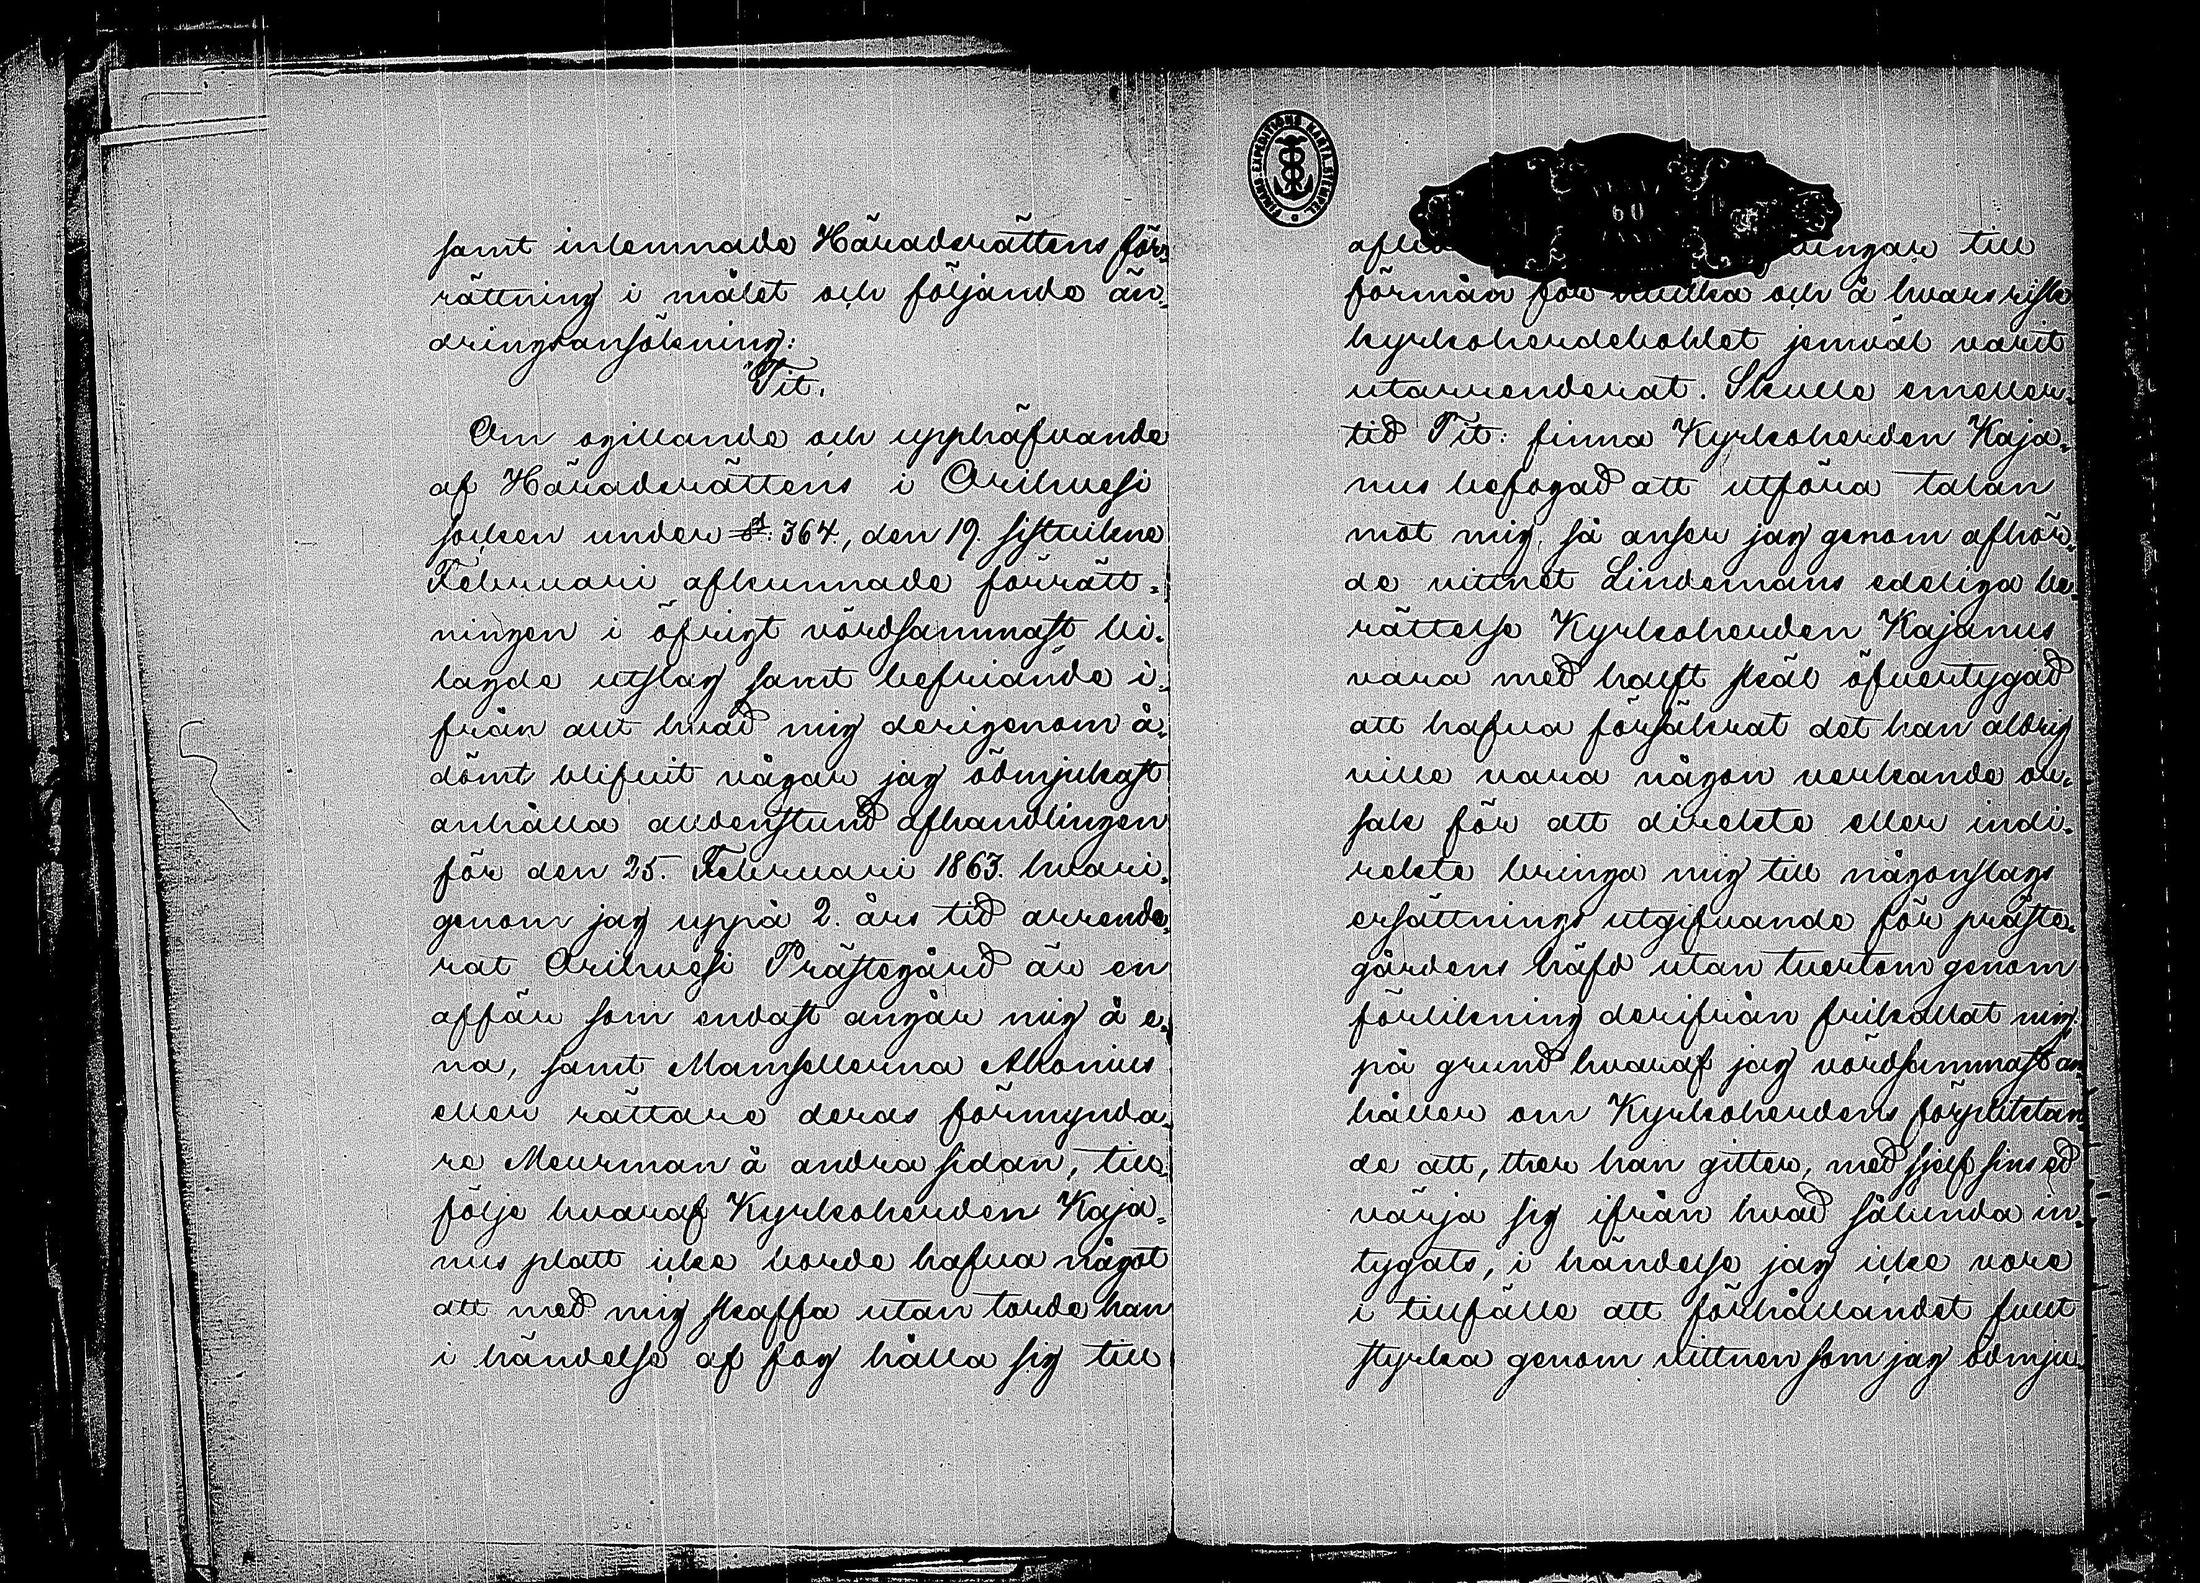 samt inlemnade Häradsrättens för-
rättning i målet och följande än-
dringsansökning:
"Tit.
Om ogillande och upphäfvande
af Häradsrättens i Orihvesi
socken under §. 364., den 19. sistvikne
Februari afkunnade förrätt-
ningen i öfrigt vördsammast bi-
lagde utslag samt befriande i-
från allt hvad mig derigenom å-
dömt blifvit vågar jag ödmjukast
anhålla alldenstund afhandlingen
för den 25. Februari 1863. hvari-
genom jag uppå 2. års tid arrende-
rat Orihvesi Prästegård är en
affär som endast angår mig å e-
na, samt Mamsellerna Alconius
eller rättare deras förmynda-
re Meurman å andra sidan, till
följe hvaraf Kyrkoherden Kaja-
nus platt icke borde hafva något
att med mig skaffa utan torde han
i händelse af fog hålla sig till
FINANS EXPEDITIONS KARTA STEMPEL
60
till
förmån för hvilka och å hvars risk
kyrkoherdebolet jemväl varit
utarrenderat. Skulle emeller-
tid Tit: finna Kyrkoherden Kaja-
nus befogad att utföra talan
mot mig, så anser jag genom afhör-
de vittnet Lindemans edeliga be-
rättelse Kyrkoherden Kajanus
vara med halft skäl öfvertygad
att hafva försäkrat det han aldrig
ville vara någon verkande or-
sak för att direkte eller indi-
rekte bringa mig till någonslags
ersättnings utgifvande för präste-
gårdens häfd utan tvertom genom
förlikning derifrån frikallat mig
på grund hvaraf jag vördsammast an-
håller om Kyrkoherdens förpliktan-
de att, ther han gitter, med sjelf sins ed
värja sig ifrån hvad sålunda in-
tygats, i händelse jag icke vore
i tillfälle att förhållandet fullt
styrka genom vittnen som jag ödmju-